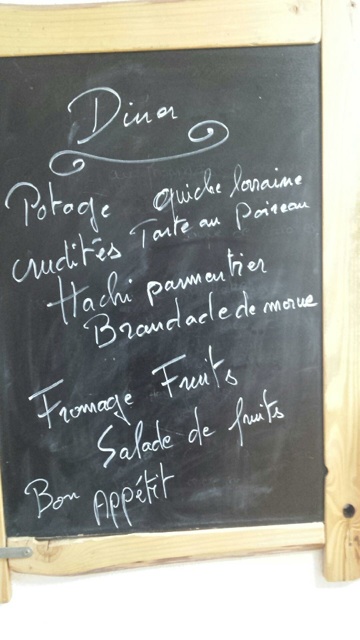 Diner
Potage quiche lorraine
crudités Tarte au Poireau
Hachi parmentier
Brandade de morue
Fromage Fruits
Salade de fruits
Bon Appétit